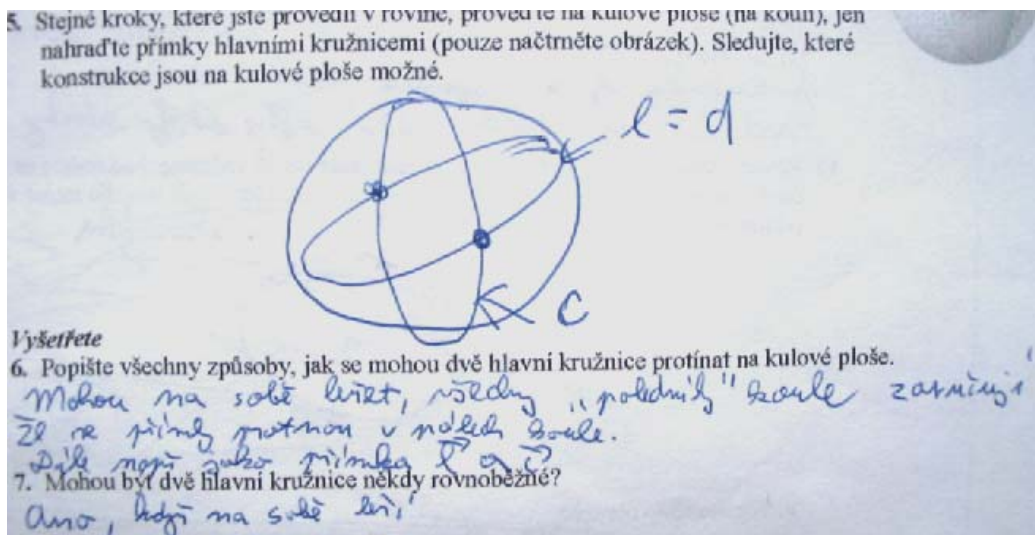 5. Stejné kroky, které jste provedli v rovině, proveďte na kulové ploše (na kouli), jen
nahraďte přímky hlavními kružnicemi (pouze načtrněte obrázek). Sledujte, které
konstrukce jsou na kulové ploše možné.
l = d
C
Vyšetřete
6. Popište všechny způsoby, jak se mohou dvě hlavní kružnice protínat na kulové ploše.
Mohou na sobě ležet, všechny "poledníky" koule zaručují
že se přímky protnou v pólech koule.
Dále např jako přímka l a c
7. Mohou být dvě hlavní kružnice někdy rovnoběžné?
Ano, když na sobě leží